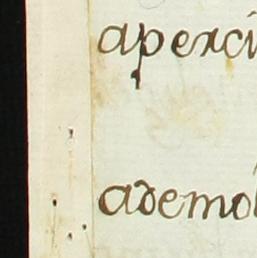 aperci
ademo